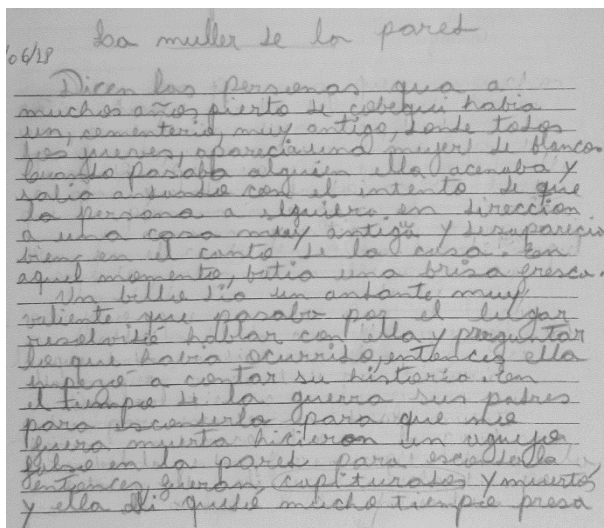 La muller de la pared
/06/18
Dicen las personas qua a
muchos años pierto de cobequi habia
un, cementerio, muy antigo, donde todos
los jueves, aparecia una mujer de blanco.
Cuando pasaba alguien ella acenaba y
salia andando con el intento de que
la persona a siguiera en direccion
a una casa muy antiga y desaparecio
bien en el canto de la casa. En
aquel momento, batia una brisa fresca.
Un bellie dia un andante muy
valiente que pasaba por el lugar
resolvisió hablar con ella y preguntar
lo que havia ocurrido, entences ella
empesó a contar su historia. en
el tiempo de la guerra sus padres
para esconderla para que no
fuera muerta hicieron un agujero
falso en la pared para
entonces, fueran capiturados y muertos
y ella quedó mucho tiempo presa